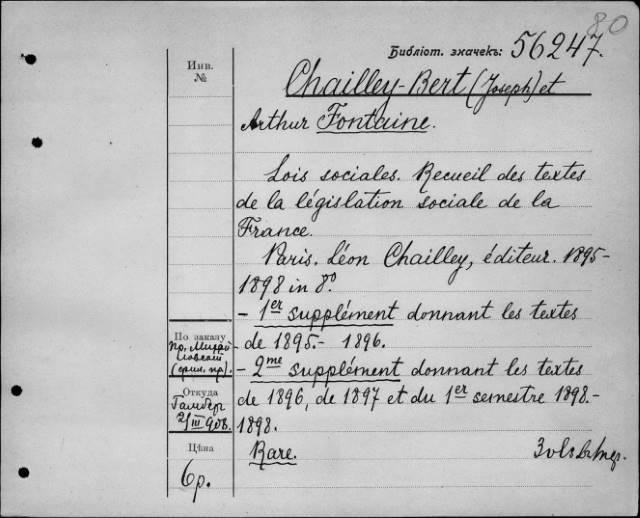 80
Библіот. значекъ: 56247.
Инв.
№
Chailley-Bert (Joseph) et
Arthur Fontaine.
Lois sociales. Recueil des textes
de la législation sociale de la
France.
Paris. Léon Chailley, éditeur. 1895-
1898 in 8º
- 1er supplément donnant les textes
de 1895.- 1896.
- 2me supplément donnant les textes
de 1896, de 1897 et du 1er semestre 1898.-
1898.
Rare.
3 vols
По заказу
пр.
Откуда
2/III 908.
Цѣна
6р.